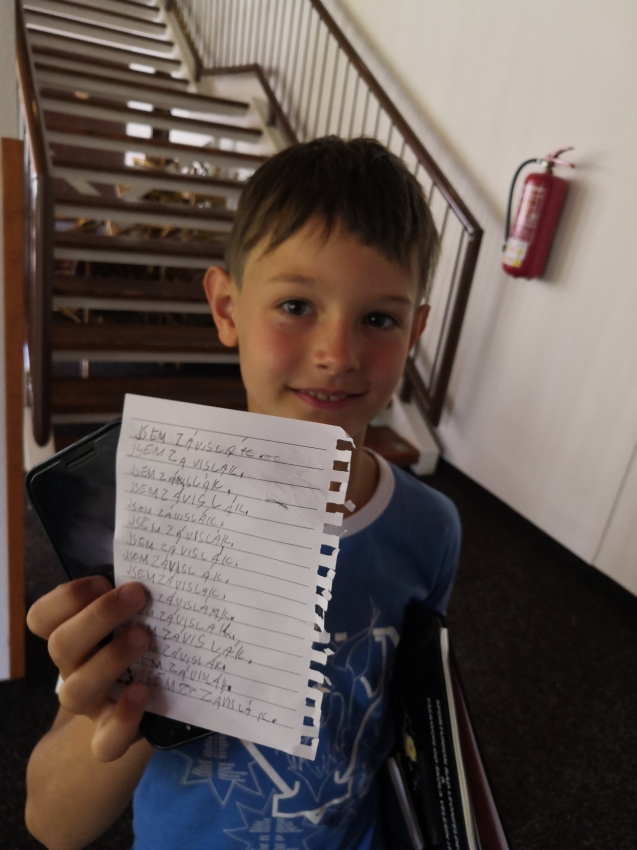 JSEM ZÁVISLÁK.
JSEM ZÁVISLÁK.
JSEM ZÁVISLÁK.
JSEM ZÁVISLÁK.
JSEM ZÁVISLÁK.
JSEM ZÁVISLÁK.
JSEM ZÁVISLÁK.
JSEM ZÁVISLÁK.
JSEM ZÁVISLÁK.
ZÁVISLÁK.
ZÁVISLÁK.
ZÁVISLÁK.
ZÁVISLÁK.
ZÁVISLÁK.
JSEM ZÁVISLÁK.